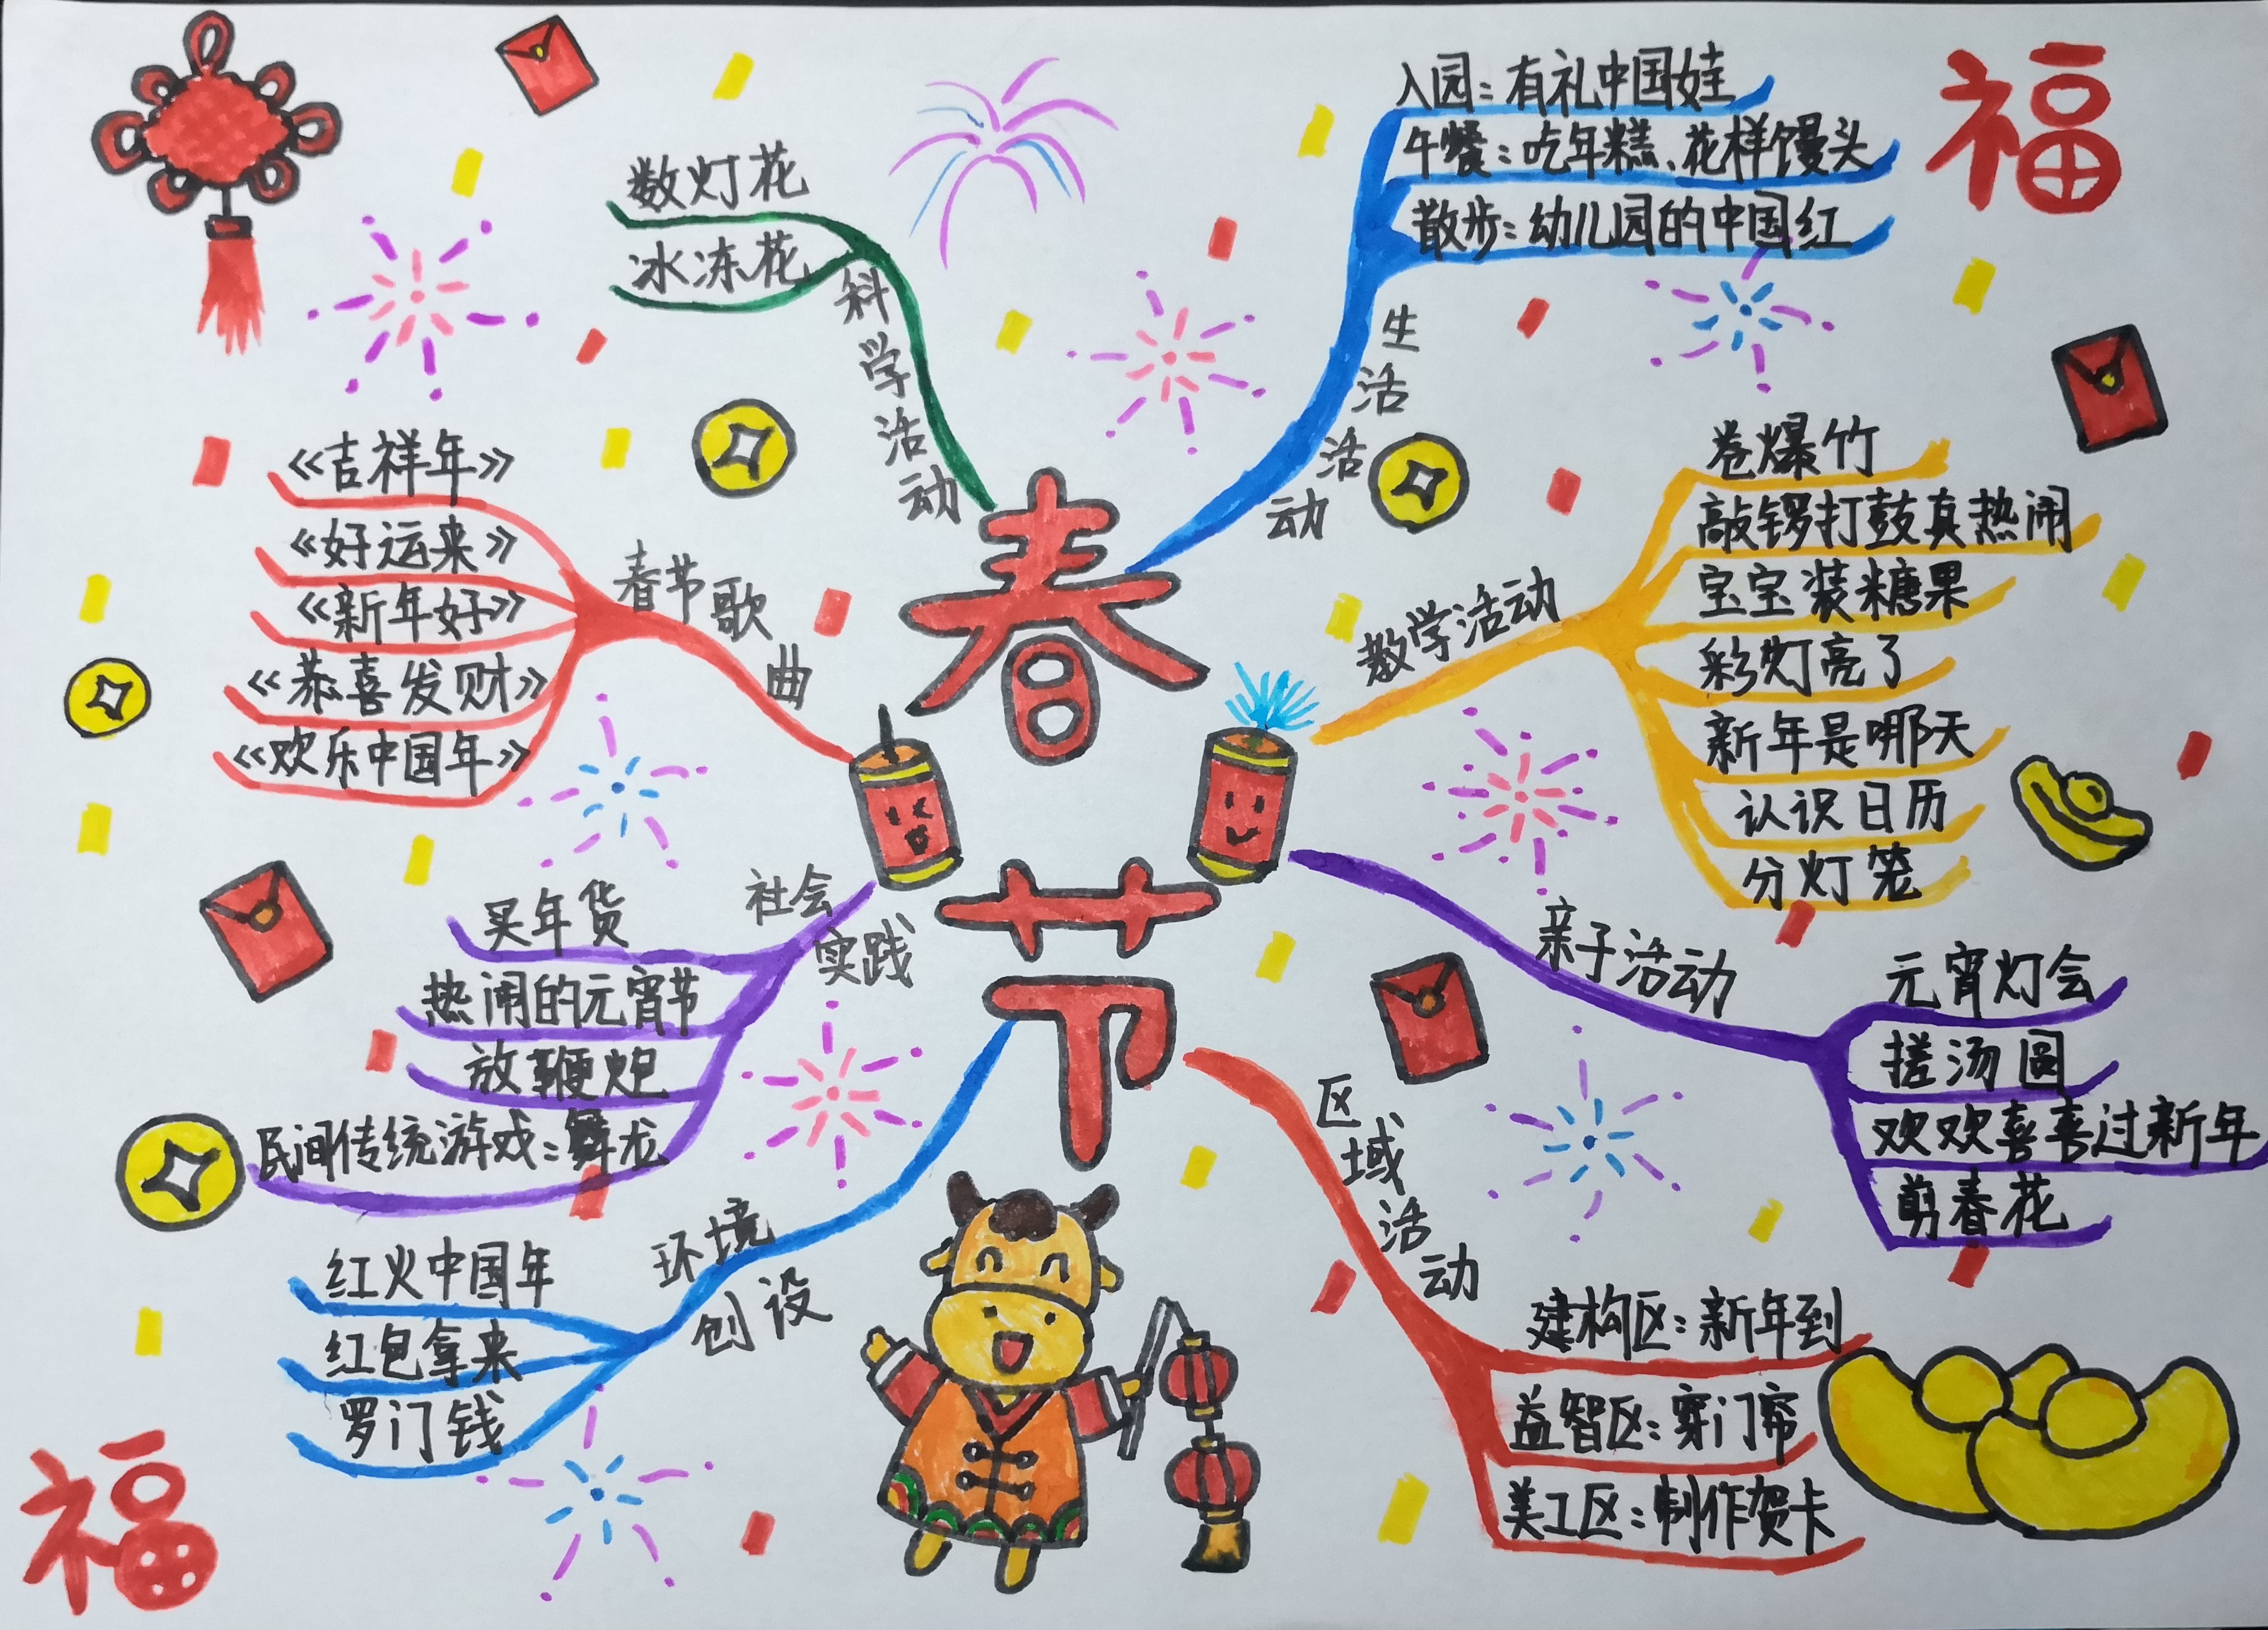 春节
科学活动
数灯花
冰冻花
生活活动
入园：有礼中国娃
午餐：吃年糕、花样馒头
散步：幼儿园的中国红
福
春节歌曲
《吉祥年》
《好运来》
《新年好》
《恭喜发财》
《欢乐中国年》
教学活动
卷爆竹
敲锣打鼓真热闹
宝宝装糖果
彩灯亮了
新年是哪天
认识日历
分灯笼
社会实践
买年货
热闹的元宵节
放鞭炮
民间传统游戏：舞龙
亲子活动
元宵灯会
搓汤圆
欢欢喜喜过新年
剪春花
环境创设
红火中国年
红包拿来
罗门钱
区域活动
建构区：新年到
益智区：穿门帘
美工区：制作贺卡
福